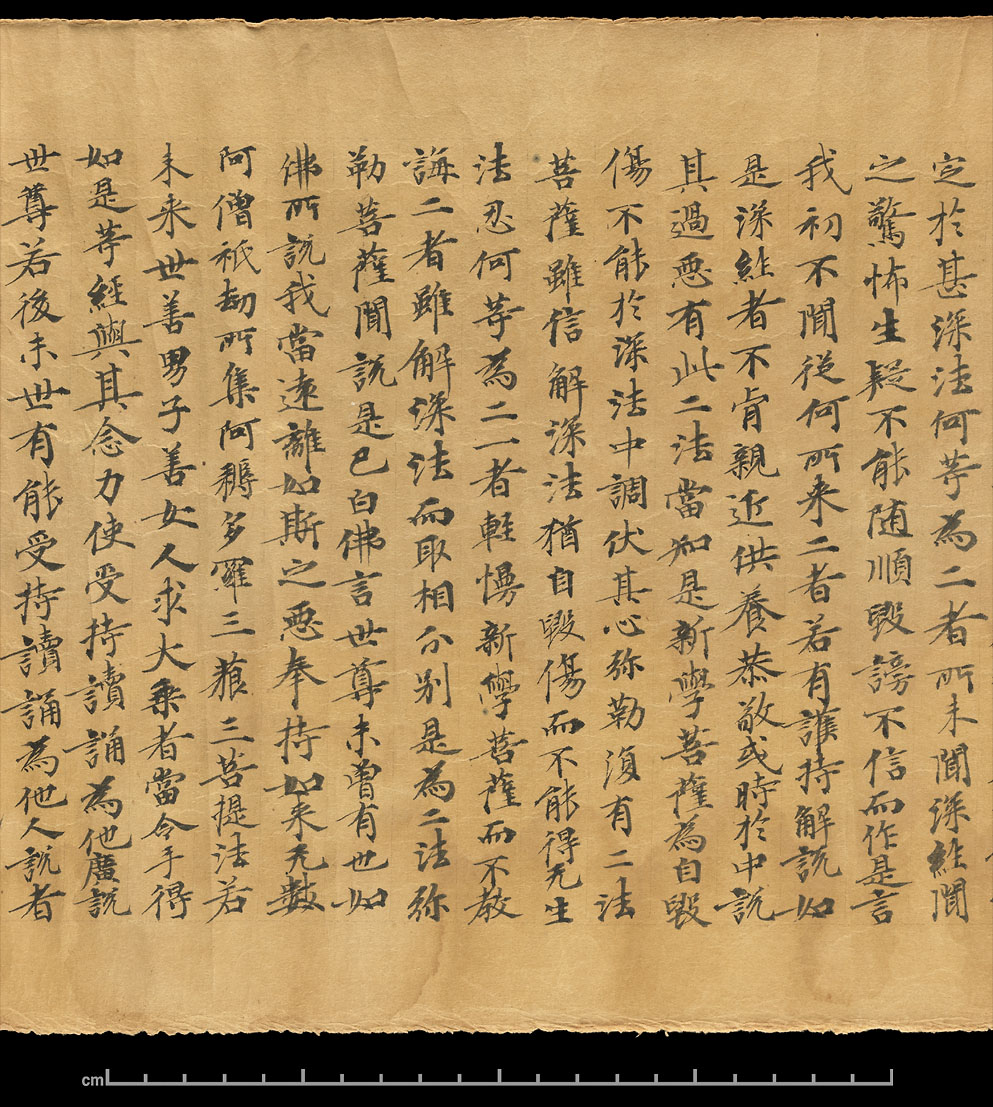 定於甚深法何等為二者所未聞深經聞
之驚怖生疑不能随順毀謗不信而作是言
我初不聞從何所来二者若有護持解說如
是深經者不肯親近供養恭敬或時於中說
其過惡有此二法當知是新學菩薩為自毀
傷不能於深法中調伏其心弥勒復有二法
菩薩雖信解深法猶自毀傷而不能得无生
法忍何等為二一者輕慢新學菩薩而不教
誨二者雖解深法而取相分别是為二法弥
勒菩薩聞說是已白佛言世尊未曾有也如
佛所說我當遠離如斯之惡奉持如来无數
阿僧祇劫所集阿耨多羅三藐三菩提法若
未来世善男子善女人求大乗者當令手得
如是等經與其念力使受持讀誦為他廣說
世尊若後末世有能受持讀誦為他人說者